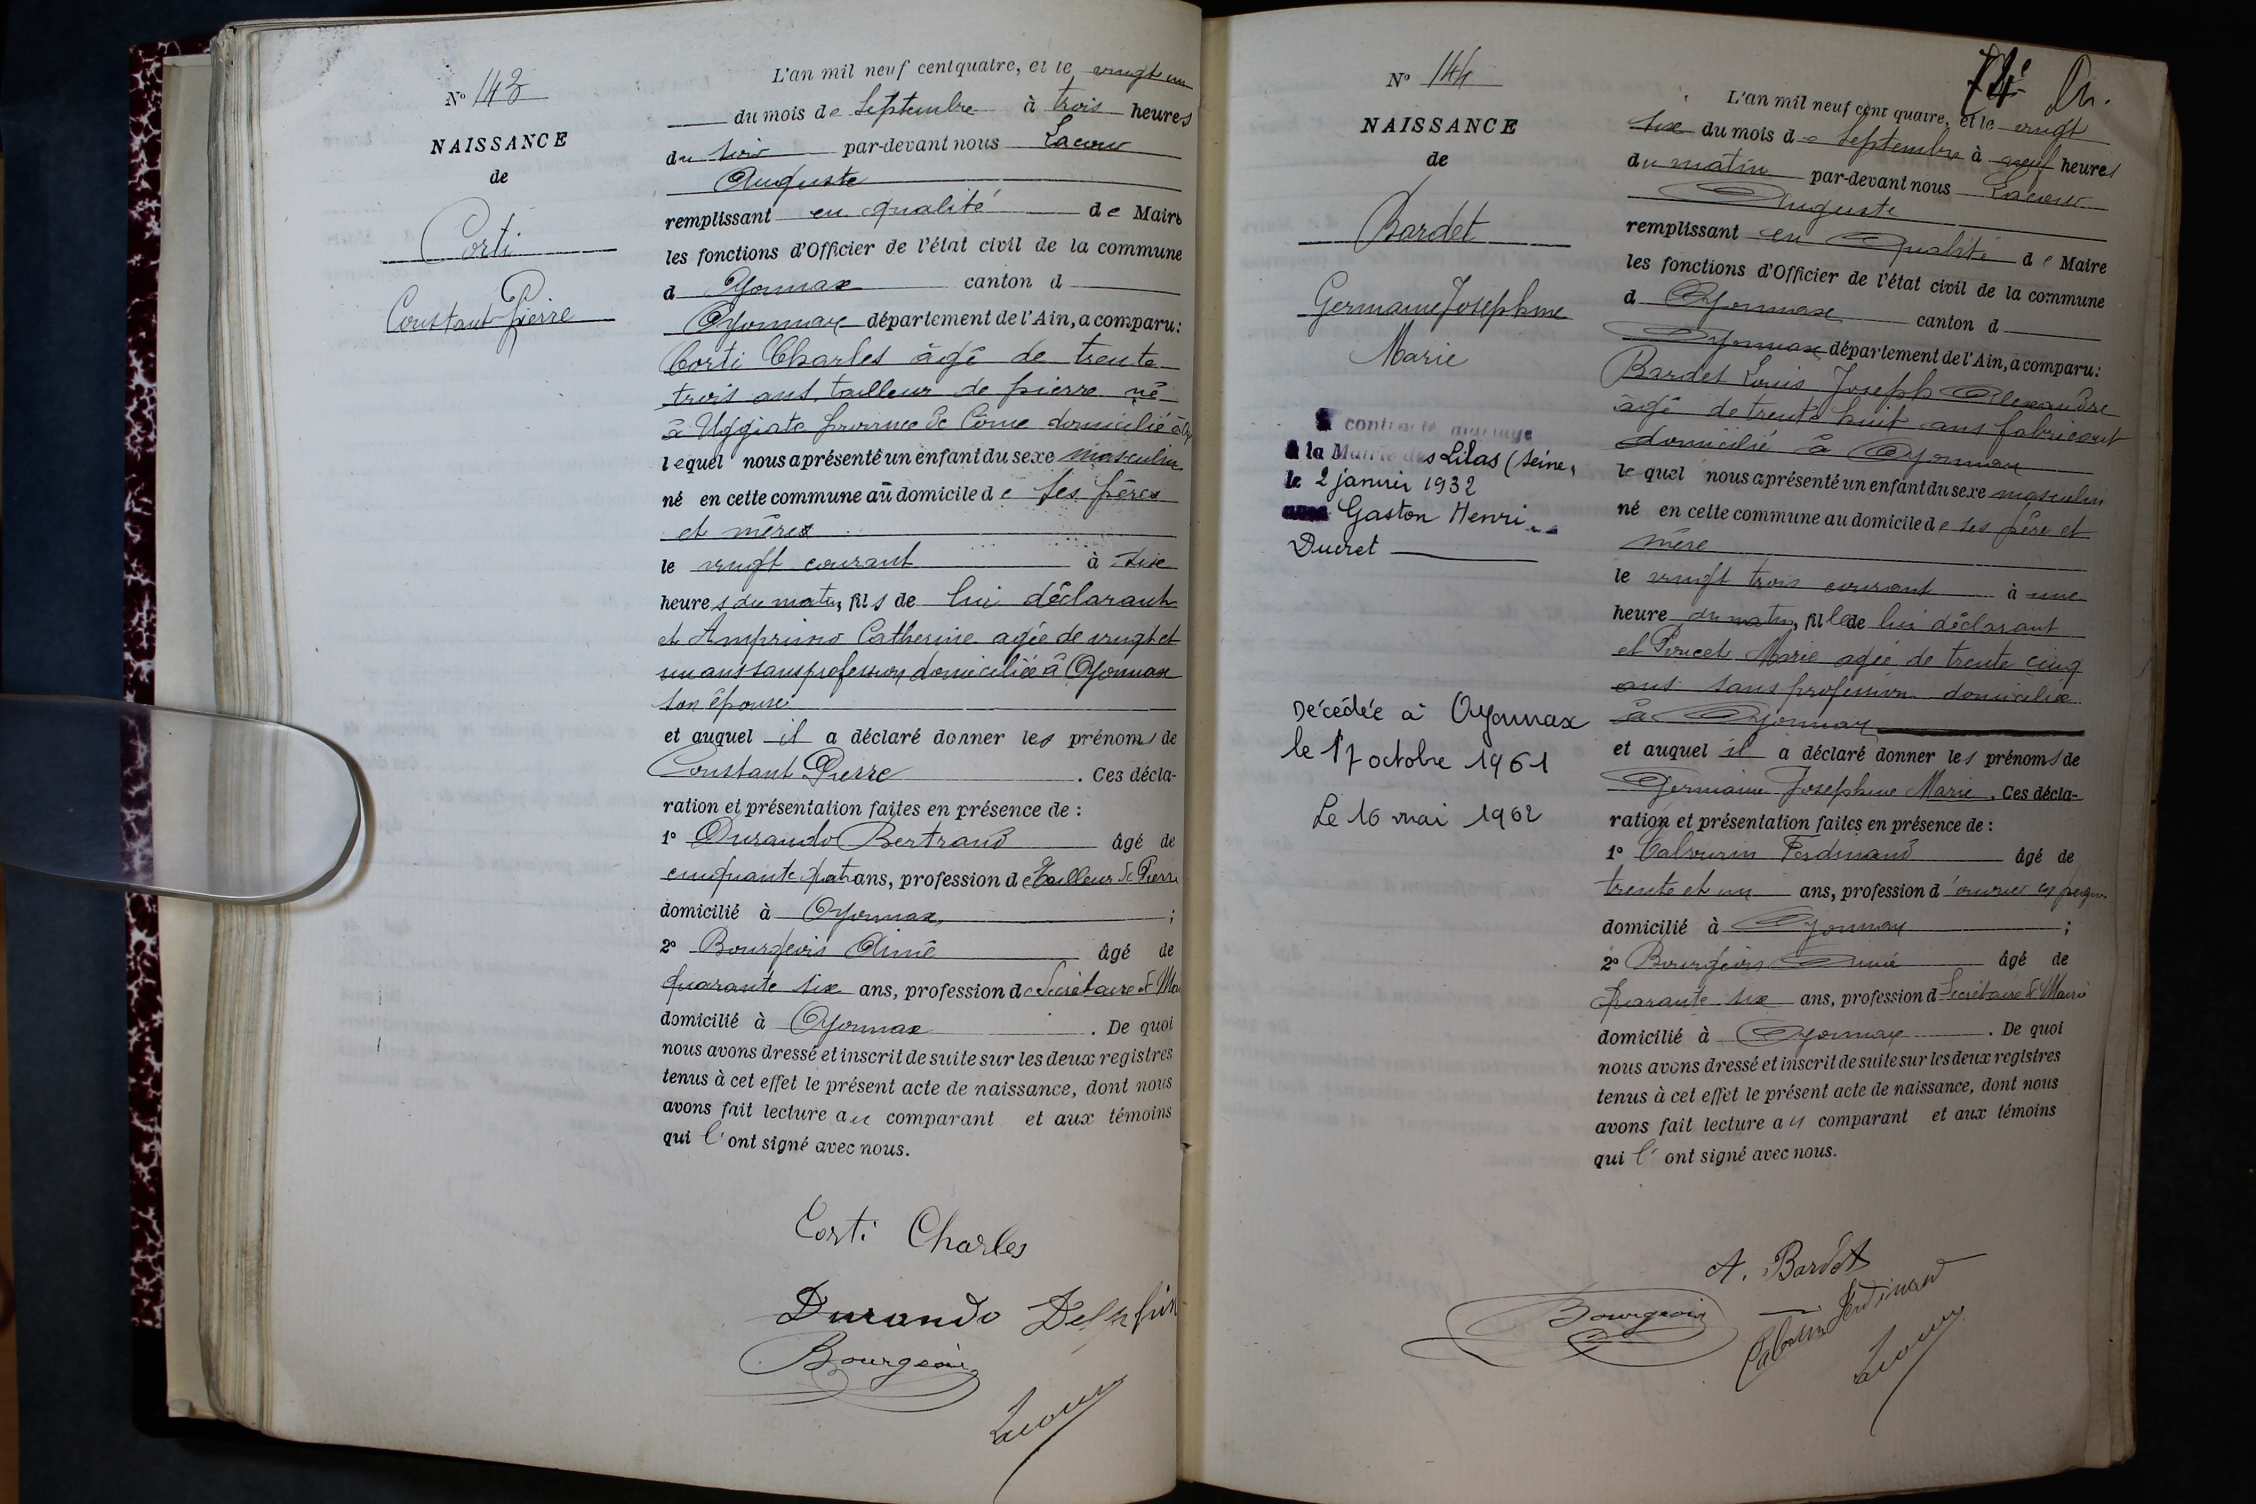 N° 143
NAISSANCE
de
Corti
Constant Pierre
L'an mil neuf cent quatre, et le vingt un
du mois de Septembre à trois heures
du soir par-devant nous Lacour
Auguste
remplissant en qualité de Maire
les fonctions d'Officier de l'état civil de la commune
d Oyonnax canton d
Oyonnax département de l'Ain, a comparu:
Corti Charles âgé de trente
trois ans, tailleur de pierre né
à Uggiate province de Côme domicilié à Oy
lequel nous a présenté un enfant du sexe masculin
né en cette commune au domicile de ses pères
et mères
le vingt courant à six
heures du matin, fils de lui déclarant
et Amprimo Catherine agée de vingt et
un ans sans profession domiciliée à Oyonnax
son épouse
et auquel il a déclaré donner les prénoms de
Constant Pierre . Ces décla-
ration et présentation faites en présence de :
1° Durando Bertrand âgé de
cinquante quatre ans, profession de Tailleur de Pierre
domicilié à Oyonnax ;
2° Bourgeois Aimé âgé de
quarante six ans, profession de Secrétaire de Mai
domicilié à Oyonnax . De quoi
nous avons dressé et inscrit de suite sur les deux registres
tenus à cet effet le présent acte de naissance, dont nous
avons fait lecture au comparant et aux témoins
qui l'ont signé avec nous.
Corti Charles
Durando Delphin
Bourgeois
Lacour
N° 144
NAISSANCE
de
Bardet
Germaine Josephine
Marie
A contracté mariage
à la Mairie des Lilas (Seine)
le 2 janvier 1932
avec Gaston Henri
Ducret
Décédée à Oyonnax
le 17 octobre 1961
Le 16 mai 1962
74e
L'an mil neuf cent quatre, et le vingt
six du mois de Septembre à neuf heures
du matin par-devant nous Lacour
Auguste
remplissant en qualité de Maire
les fonctions d'Officier de l'état civil de la commune
d Oyonnax canton d
Oyonnax département de l'Ain, a comparu:
Bardet Louis Joseph Alexandre
âgé de trente huit ans fabricant
domicilié à Oyonnax
lequel nous a présenté un enfant du sexe masculin
né en cette commune au domicile de ses père et
mère
le vingt trois courant à une
heure du matin, fille de lui déclarant
et Poncet Marie agée de trente cinq
ans sans profession domiciliée
à Oyonnax
et auquel il a déclaré donner les prénoms de
Germaine Josephine Marie . Ces décla-
ration et présentation faites en présence de :
1° Calourin Ferdinand âgé de
trente et un ans, profession d'ouvrier en peignes
domicilié à Oyonnax ;
2° Bourgeois Aimé âgé de
quarante six ans, profession d Secrétaire de Mairie
domicilié à Oyonnax . De quoi
nous avons dressé et inscrit de suite sur les deux registres
tenus à cet effet le présent acte de naissance, dont nous
avons fait lecture au comparant et aux témoins
qui l'ont signé avec nous.
A. Bardet
Bourgeois
Calourin Ferdinand
Lacour